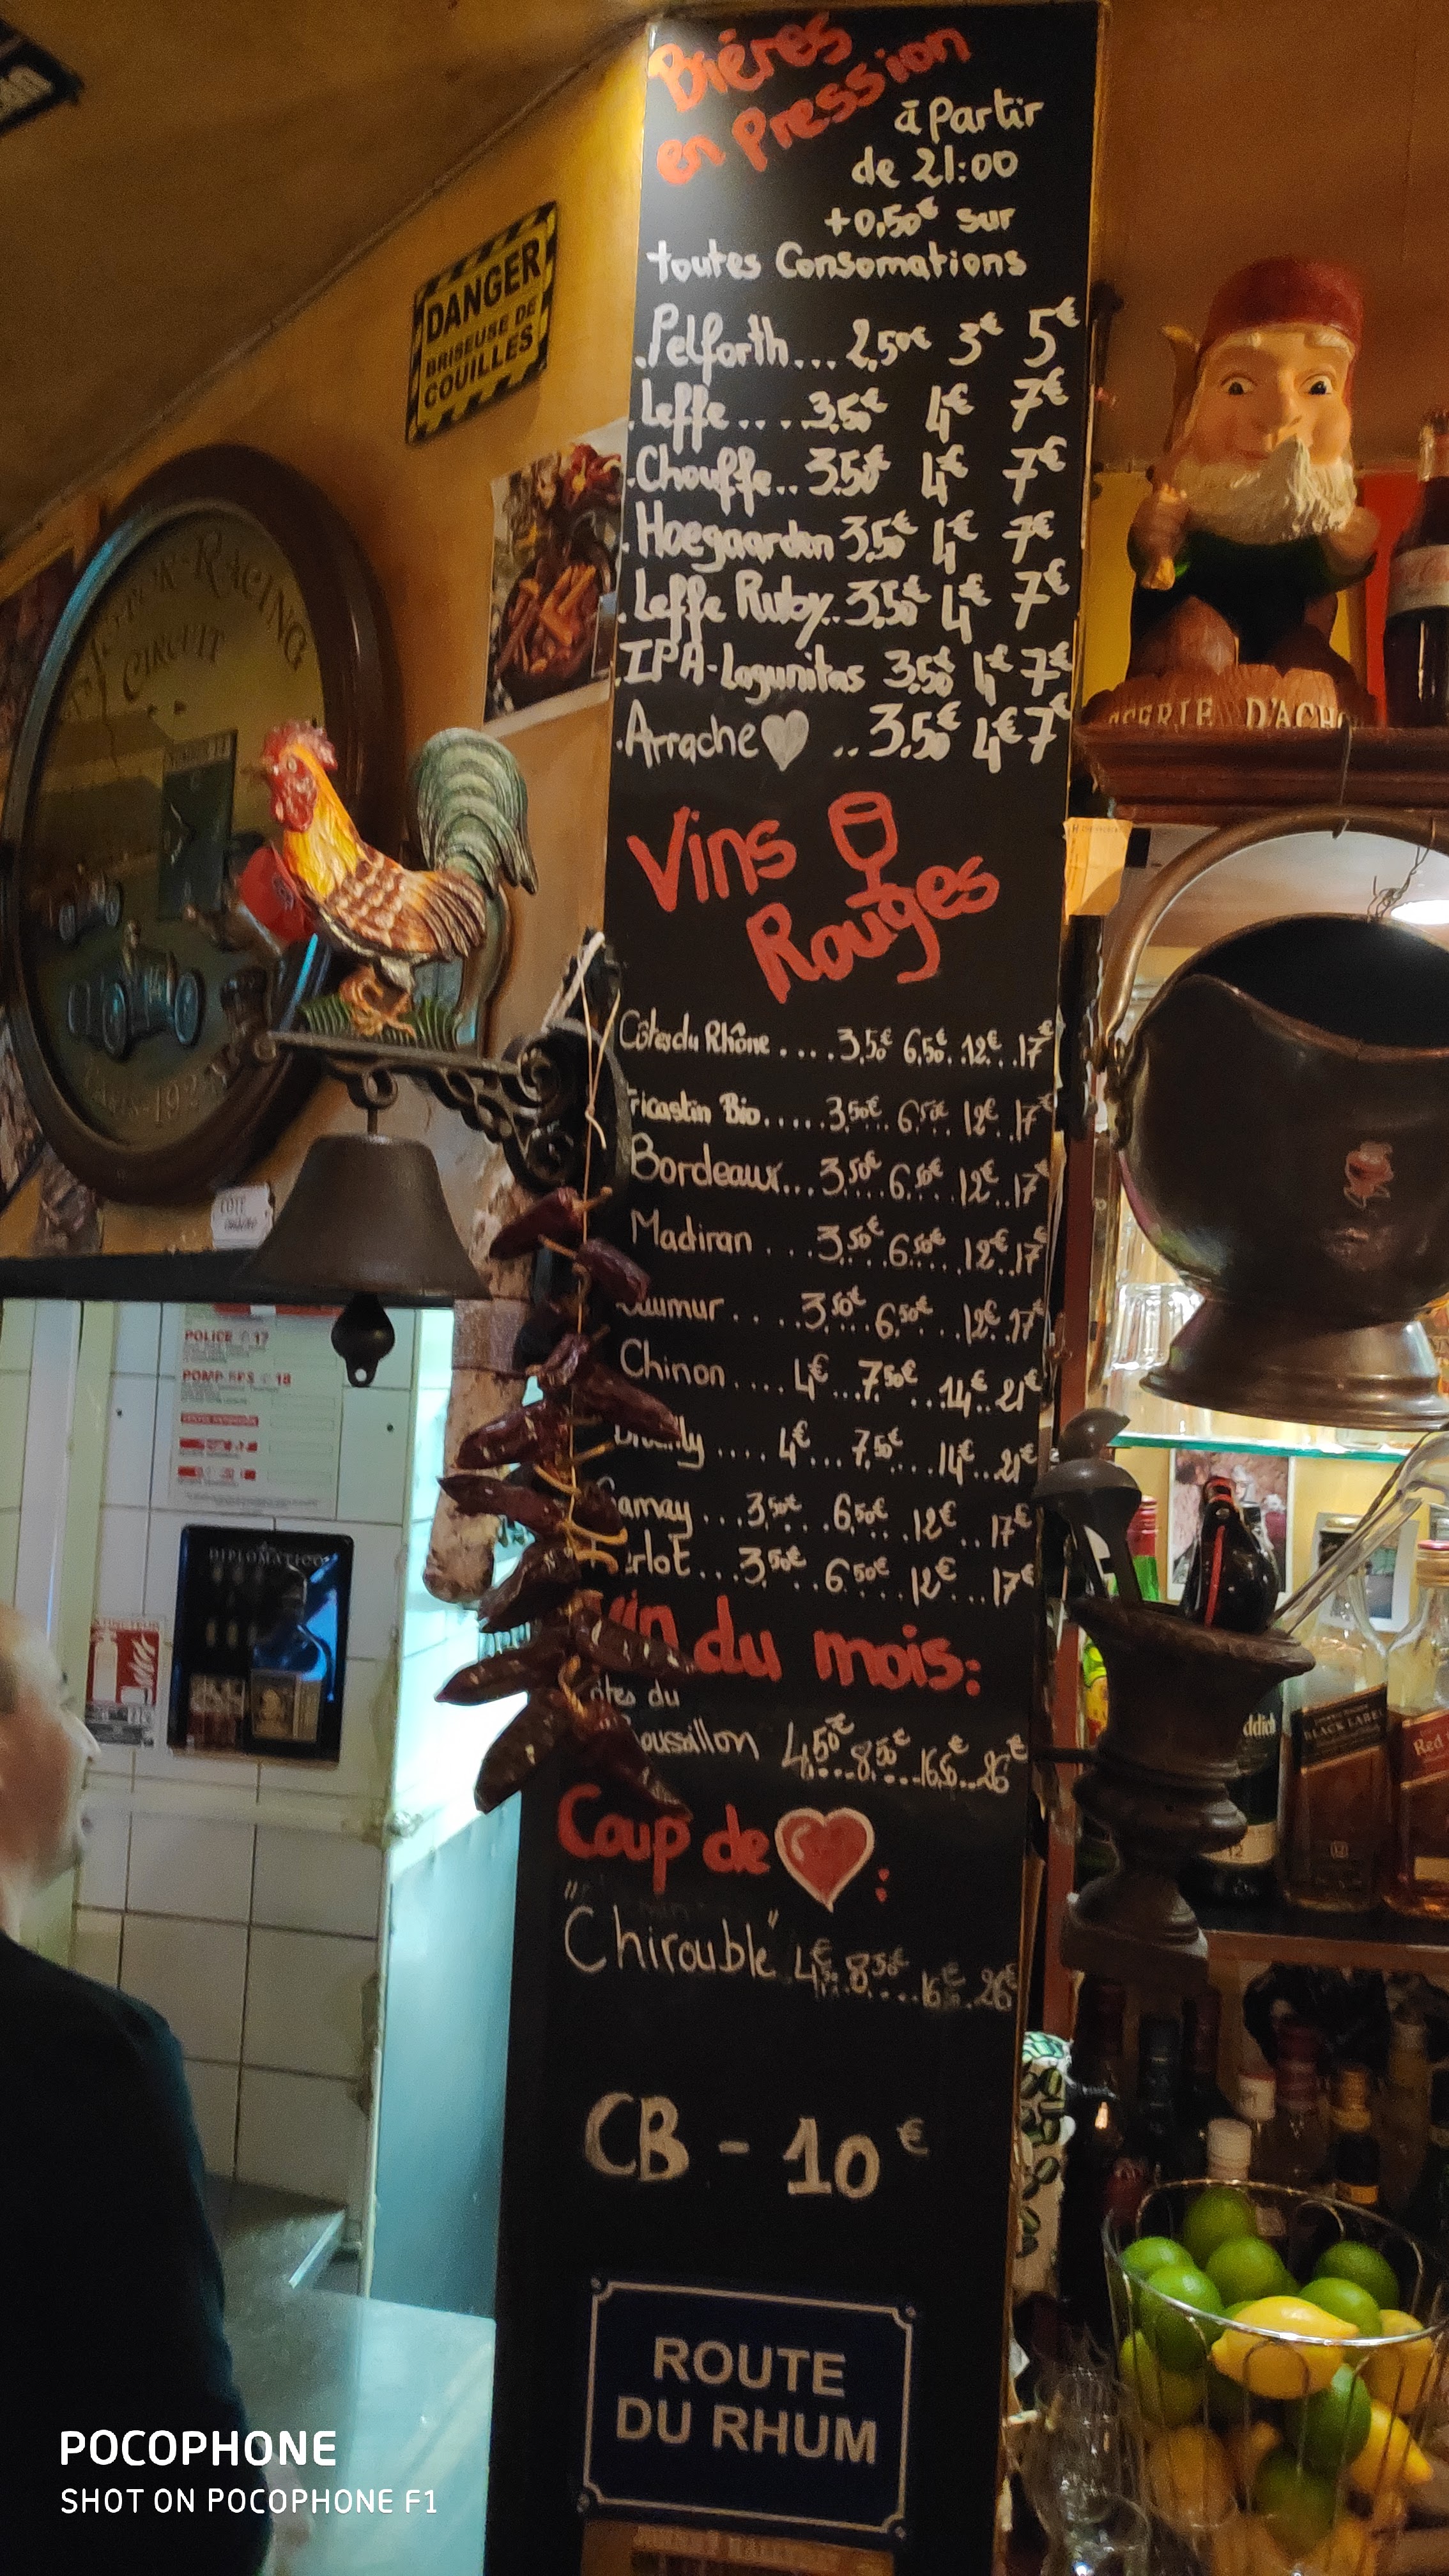 Biéres
en Pression
à Partir
de 21:00
+0,50€ sur
toutes Consomations
.Pelforth... 2,50€ 3€ 5€
.Leffe.... 3,50€ 4€ 7€
.Chouffe.. 3.50€ 4€ 7€
.Hoegaarden 3,50€ 4€ 7€
.Leffe Ruby.. 3,50€ 4€ 7€
.IPA-Lagunitas 3,50€ 4€ 7€
.Arrache .. 3,50€ 4€ 7€
Vins
Rouges
Côtes du Rhône .... 3,50€ 6,50€ .12€. .17€
ricastin Bio..... 3,50€ 6,50€ 12€ 17€
Bordeaux... 3,50€.... 6,50€... 12€..17€
Madiran .... 3,50€ 6,50€ 12€ 17€
aumur .... 3,50€.. 6,50€ ...12€..17€
Chinon .... 4€...7,50€ ...14€..21€
lly .... 4€... 7,50€ ...14€...21€
amay ...3,50€.. .6,50€ ..12€ ..17€
rlot ...3,50€...6,50€...12€...17€
Vin du mois:
ôtes du
oussillon 4,50€...8,50€...16€...26€
Coup de :
"Chirouble" 4€ 8,50€ 16€ 26€
CB - 10€
ROUTE
DU RHUM
DANGER
BRISEUSE DE
COUILLES
RACING
CIRCUIT
POLICE 17
18
DIPLOMATICO
D'ACHO
BLACK LABEL
Red
ddich
12
POCOPHONE
SHOT ON POCOPHONE F1